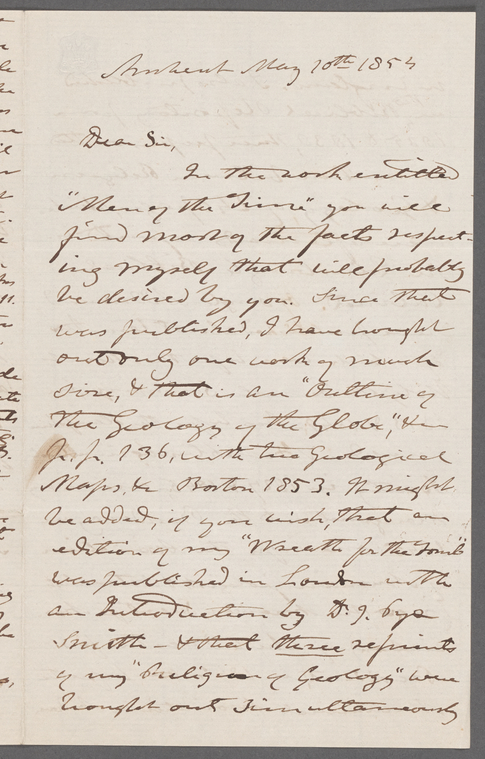 Amherst May 10th 1854
Dear Sir,
In the work entitled
"Men of the Time" you will
find most of the facts respect-
ing myself that will probably
be desired by you. Since that
was published, I have brought
out only one work of much
size, & that is an "Outline of
the Geology of the Globe," &c
p.p. 136, with two Geological
Maps, &c Boston 1853. It might
be added, if you wish, that an
edition of my "Wreath for the Tomb"
was published in London with
an Introduction by Dr. J. Pye
Smith - & that three reprints
of my "Religion of Geology" were
brought out simultaneously